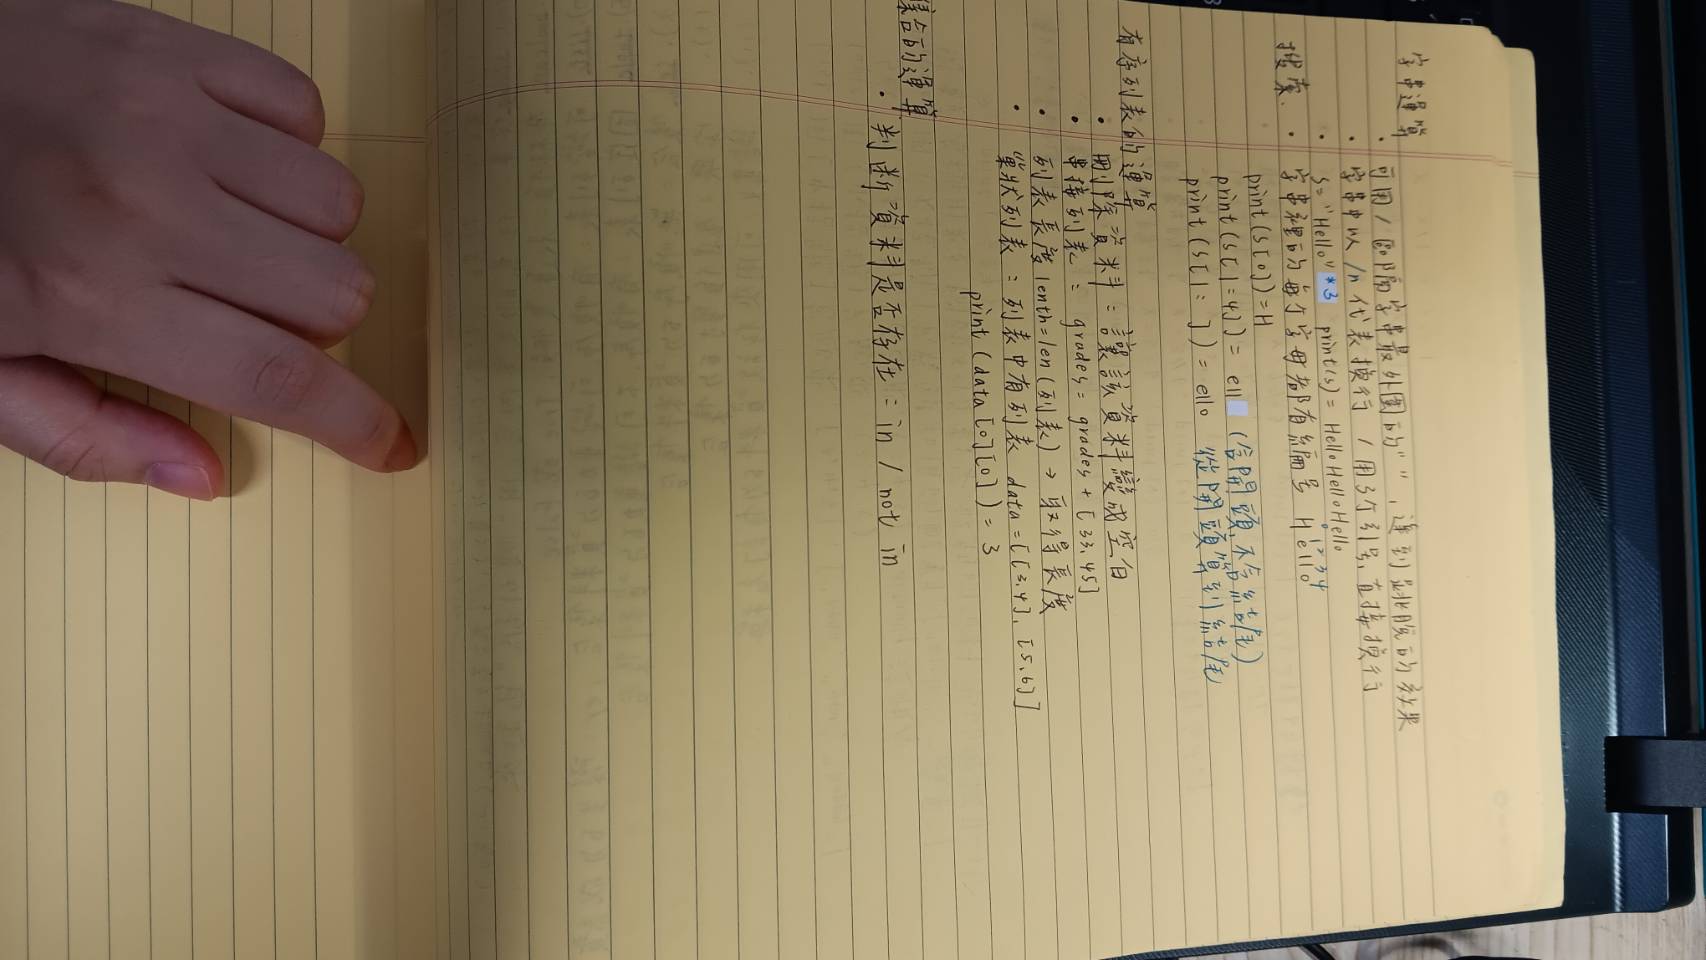 字串運算
• 可用 / 即隔字串最外圍的 " " , 達到跳脫的效果
• 字串中以 /n 代表換行 / 用3個引号,直接換行
• s="Hello"*3 print(s)= HelloHelloHello
搜索. • 字串裡的每個字母都有編号 Hello
01234
print(s[0])=H
print(s[1:4])= ell (含開頭,不含結尾)
print(s[1: ])= ello 從開頭算到結尾
有序列表的運算
• 刪除資料 : 讓該資料變成空白
• 串接列表 : grades = grades + [33,45]
• 列表長度 lenth=len(列表) → 取得長度
• 巢狀列表 : 列表中有列表 data=[[3,4], [5,6]]
print(data[0][0])=3
集合的運算
• 判斷資料是否存在 : in / not in